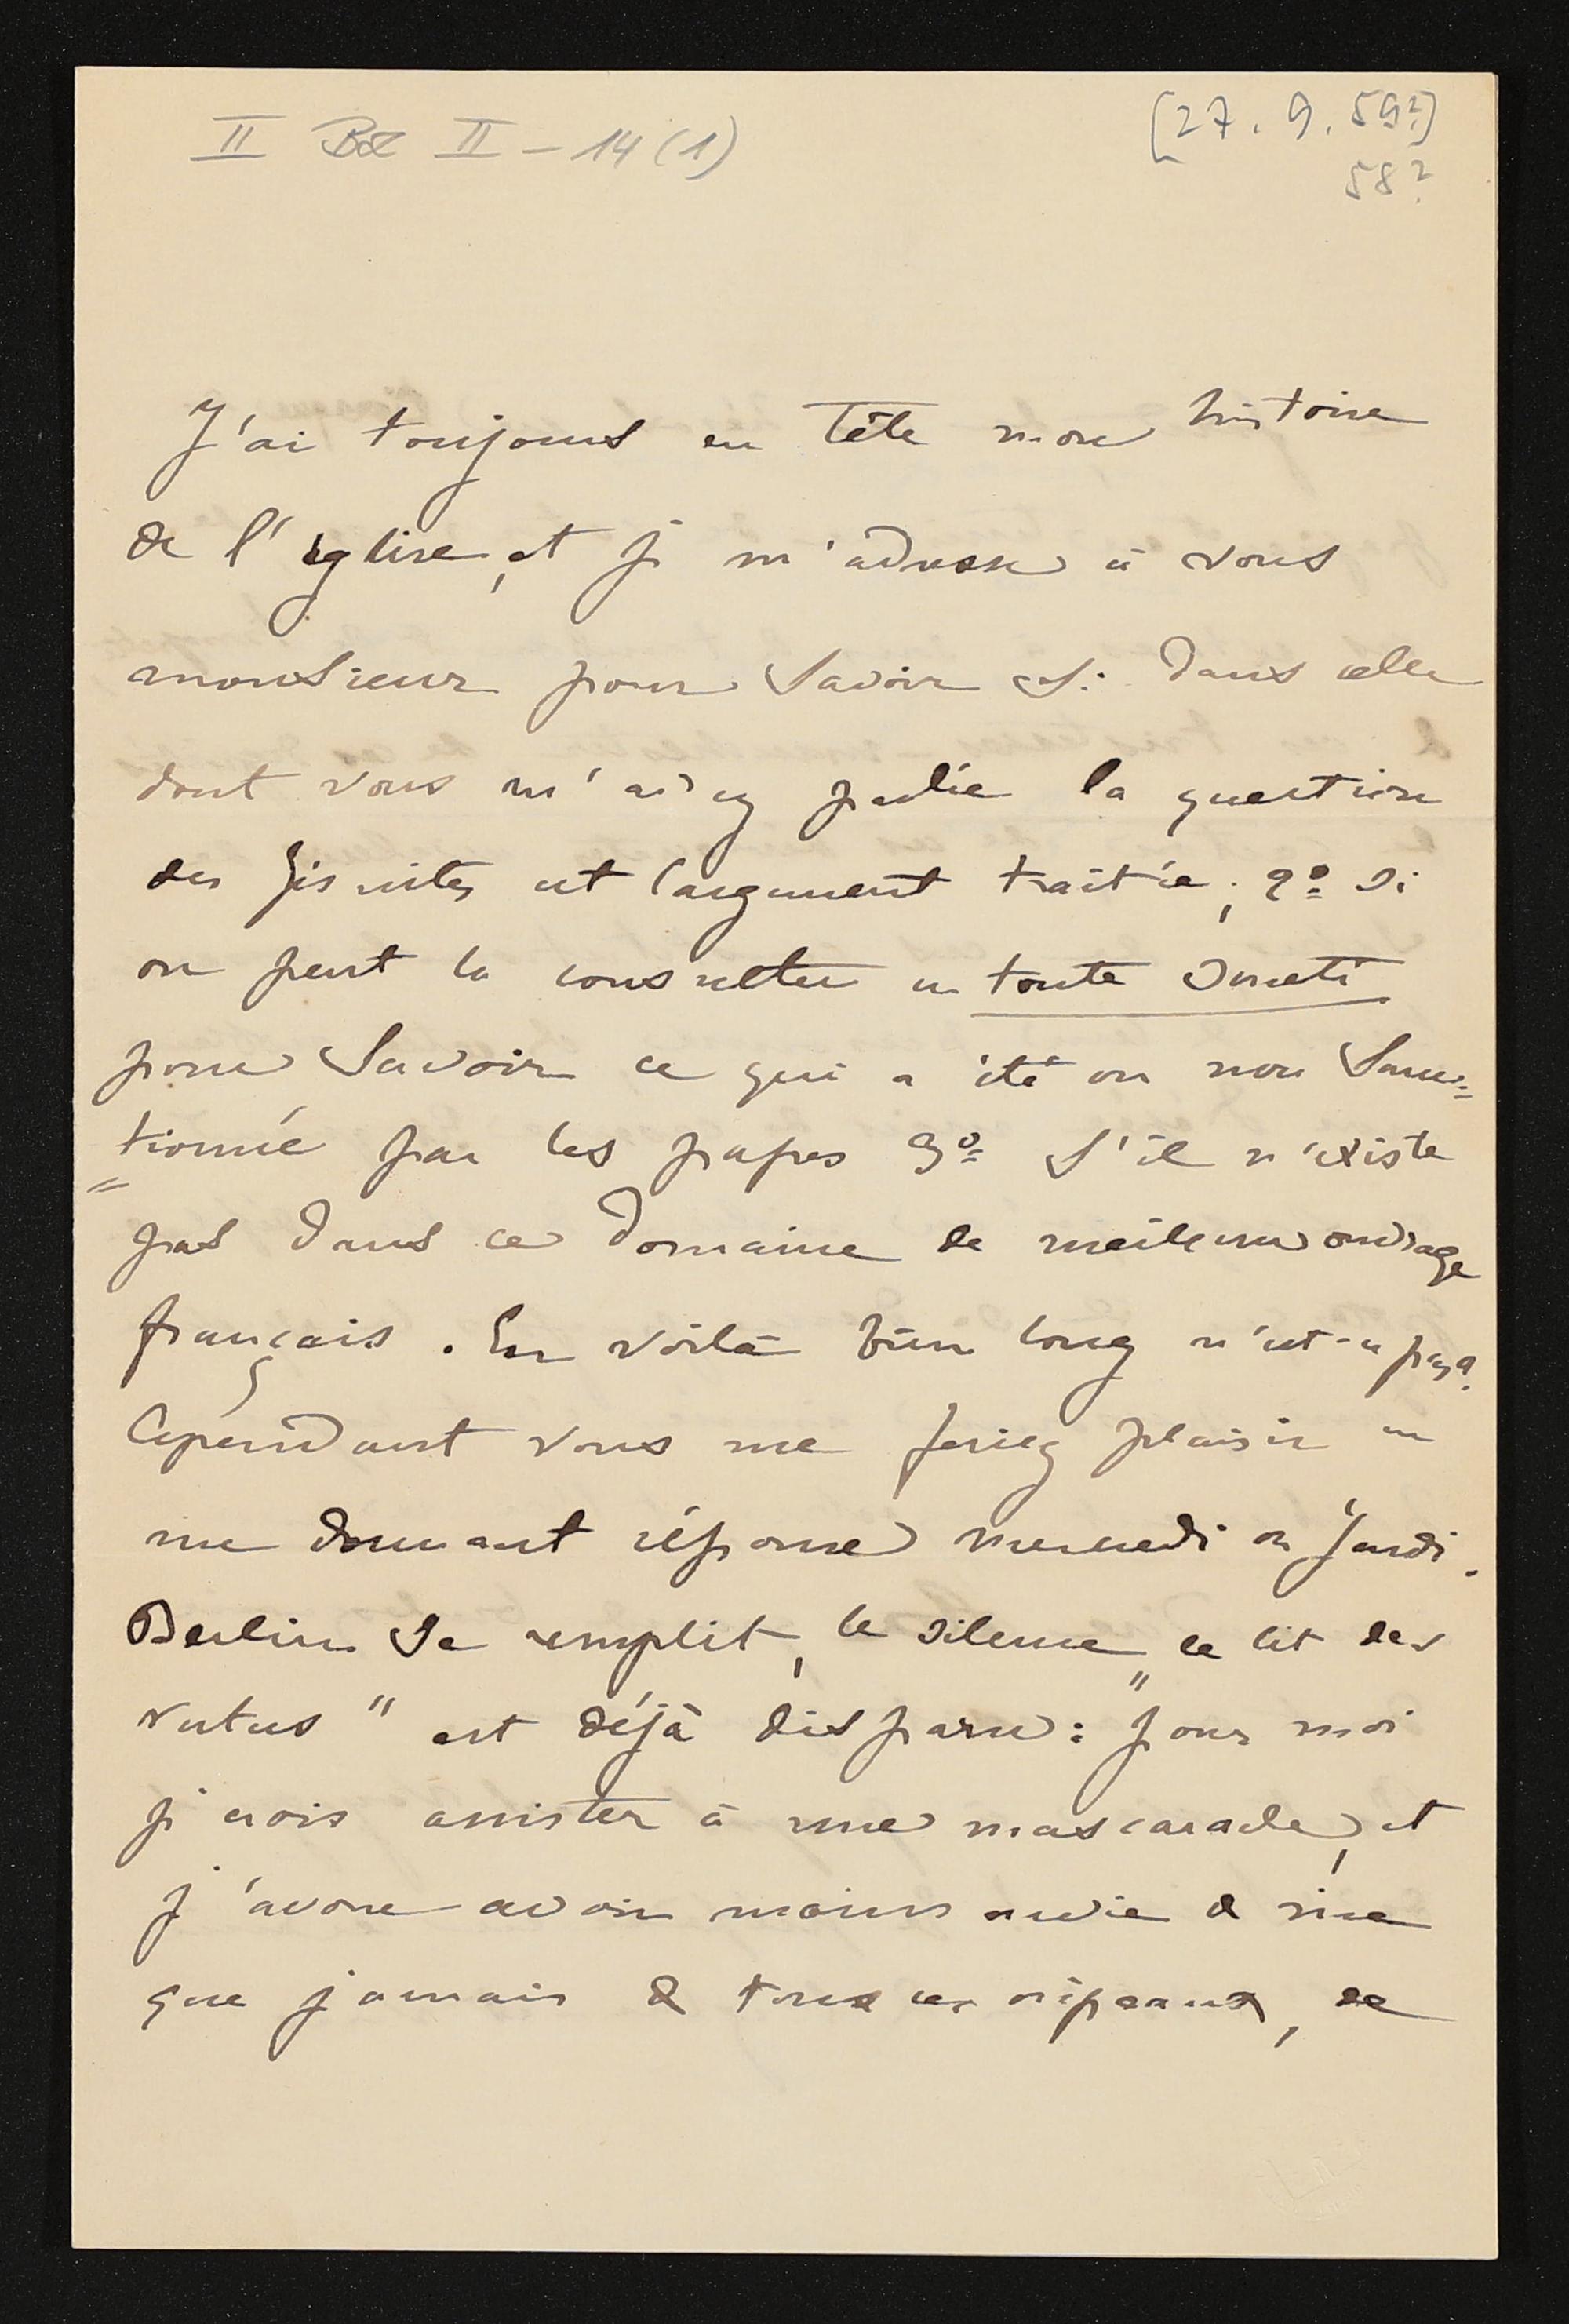 II BZ II - 14 (1)
[27. 9. 59?]
58?
J'ai toujours en tête mon histoire
de l'église, et je m'adresse à vous
monsieur pour savoir si dans celle
dont vous m'aviez parlée la question
des Jésuites est largement traitée; 2º si
on peut la consulter en toute sureté
pour savoir ce qui a été ou non sanc=
=tionné par les papes 3º s'il n'existe
pas dans ce domaine de meilleur ouvrage
français. En voilà bien long n'est-ce pas?
Cependant vous me feriez plaisir en
me donnant réponse mercredi ou Jeudi.
Berlin se remplit, le silence „le lit des
vertus" est déjà disparu: pour moi
je crois assister à une mascarade, et
j'avoue avoir moins envie de rire
que jamais de tous ces oripeaux, de